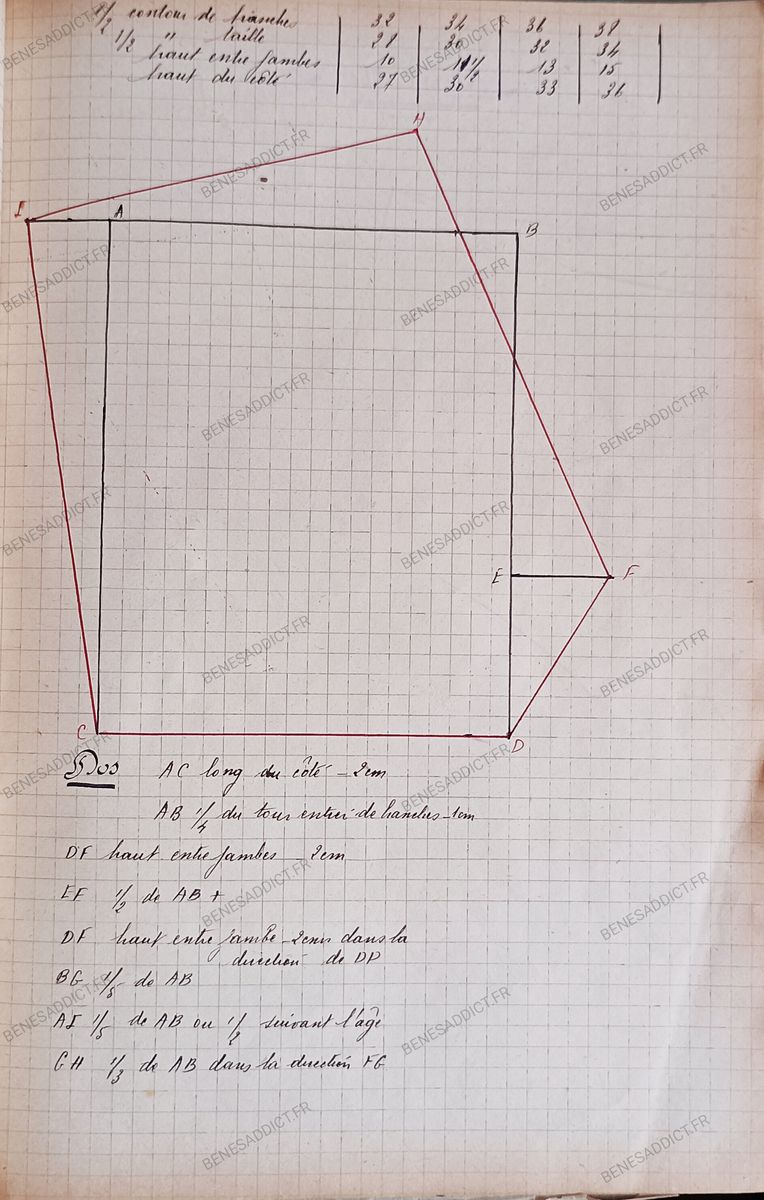 1/2 contour de hanches 32 34 36 38
1/2 " taille 28 30 32 34
haut entre jambes 10 11 1/2 13 15
haut du côté 27 30 33 36
H
I A
B
E F
C D
Dos AC long du côté - 2cm
AB 1/4 du tour entier de hanches - 1cm
DF haut entre jambes - 2cm
EF 1/2 de AB +
DF haut entre jambe - 2cms dans la
direction de DP
BG 1/5 de AB
AI 1/5 de AB ou 1/2 suivant l'âge
GH 1/3 de AB dans la direction FG
BENESADDICT.FR